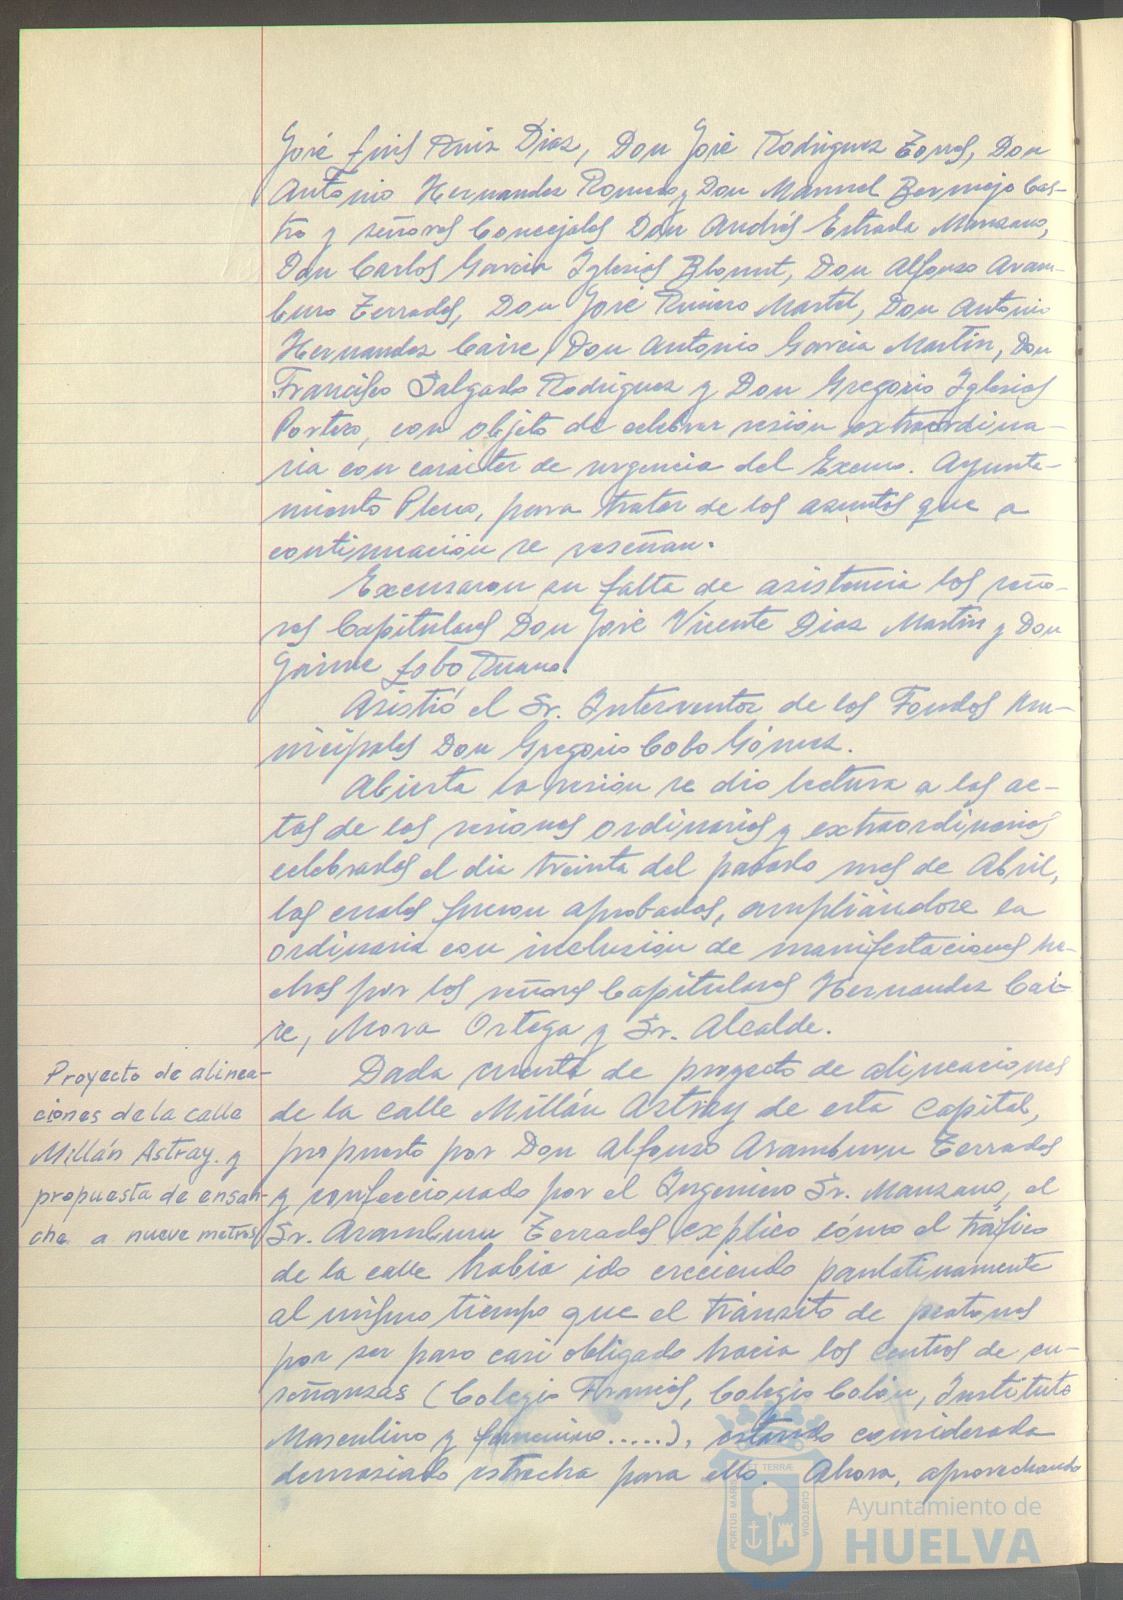 José Luis Ruiz Diaz, Don José Rodriguez Torres, Don
Antonio Hernandez Romero, Don Manuel Bermejo Cas-
tro y señores Concejales Don Andrés Estrada Manzano,
Don Carlos Garcia Iglesias Blount, Don Alfonso Aram-
buru Terrades, Don José Rivero Martel, Don Antonio
Hernandez Caire, Don Antonio Garcia Martin, Don
Francisco Salgado Rodriguez y Don Gregorio Iglesias
Portero, con objeto de celebrar sesión extraordina-
ria con carácter de urgencia del Excmo. Ayunta-
miento Pleno, para tratar de los asuntos que a
continuación se reseñan.
Excusaron su falta de asistencia los seño-
res Capitulares Don José Vicente Diaz Martin y Don
Jaime Lobo Ruano.
Asistió el Sr. Interventor de los Fondos Mu-
nicipales Don Gregorio Cobo Gómez.
Abierta la sesión se dio lectura a las ac-
tas de las sesiones ordinarias y extraordinarias
celebradas el dia treinta del pasado mes de Abril,
las cuales fueron aprobadas, ampliándose la
ordinaria con inclusión de manifestaciones he-
chas por los señores Capitulares Hernandez Cai-
re, Mora Ortega y Sr. Alcalde.
Proyecto de alinea-
ciones de la calle
Millán Astray. y
propuesta de ensan-
che a nueve metros
Dada cuenta de proyecto de alineaciones
de la calle Millán Astray de esta Capital,
propuesto por Don Alfonso Aramburu Terrades
y confeccionado por el Ingeniero Sr. Manzano, el
Sr. Aramburu Terrades explico cómo el tráfico
de la calle habia ido creciendo paulatinamente
al mismo tiempo que el tránsito de peatones
por ser paso casi obligado hacia los centros de en-
señanzas (Colegio Francés, Colegio Colón, Instituto
Masculino y femenino.....), estando considerada
demasiado estrecha para ello. Ahora, aprovechando
PORTUS MARIS ET TERRÆ CUSTODIA
Ayuntamiento de
HUELVA